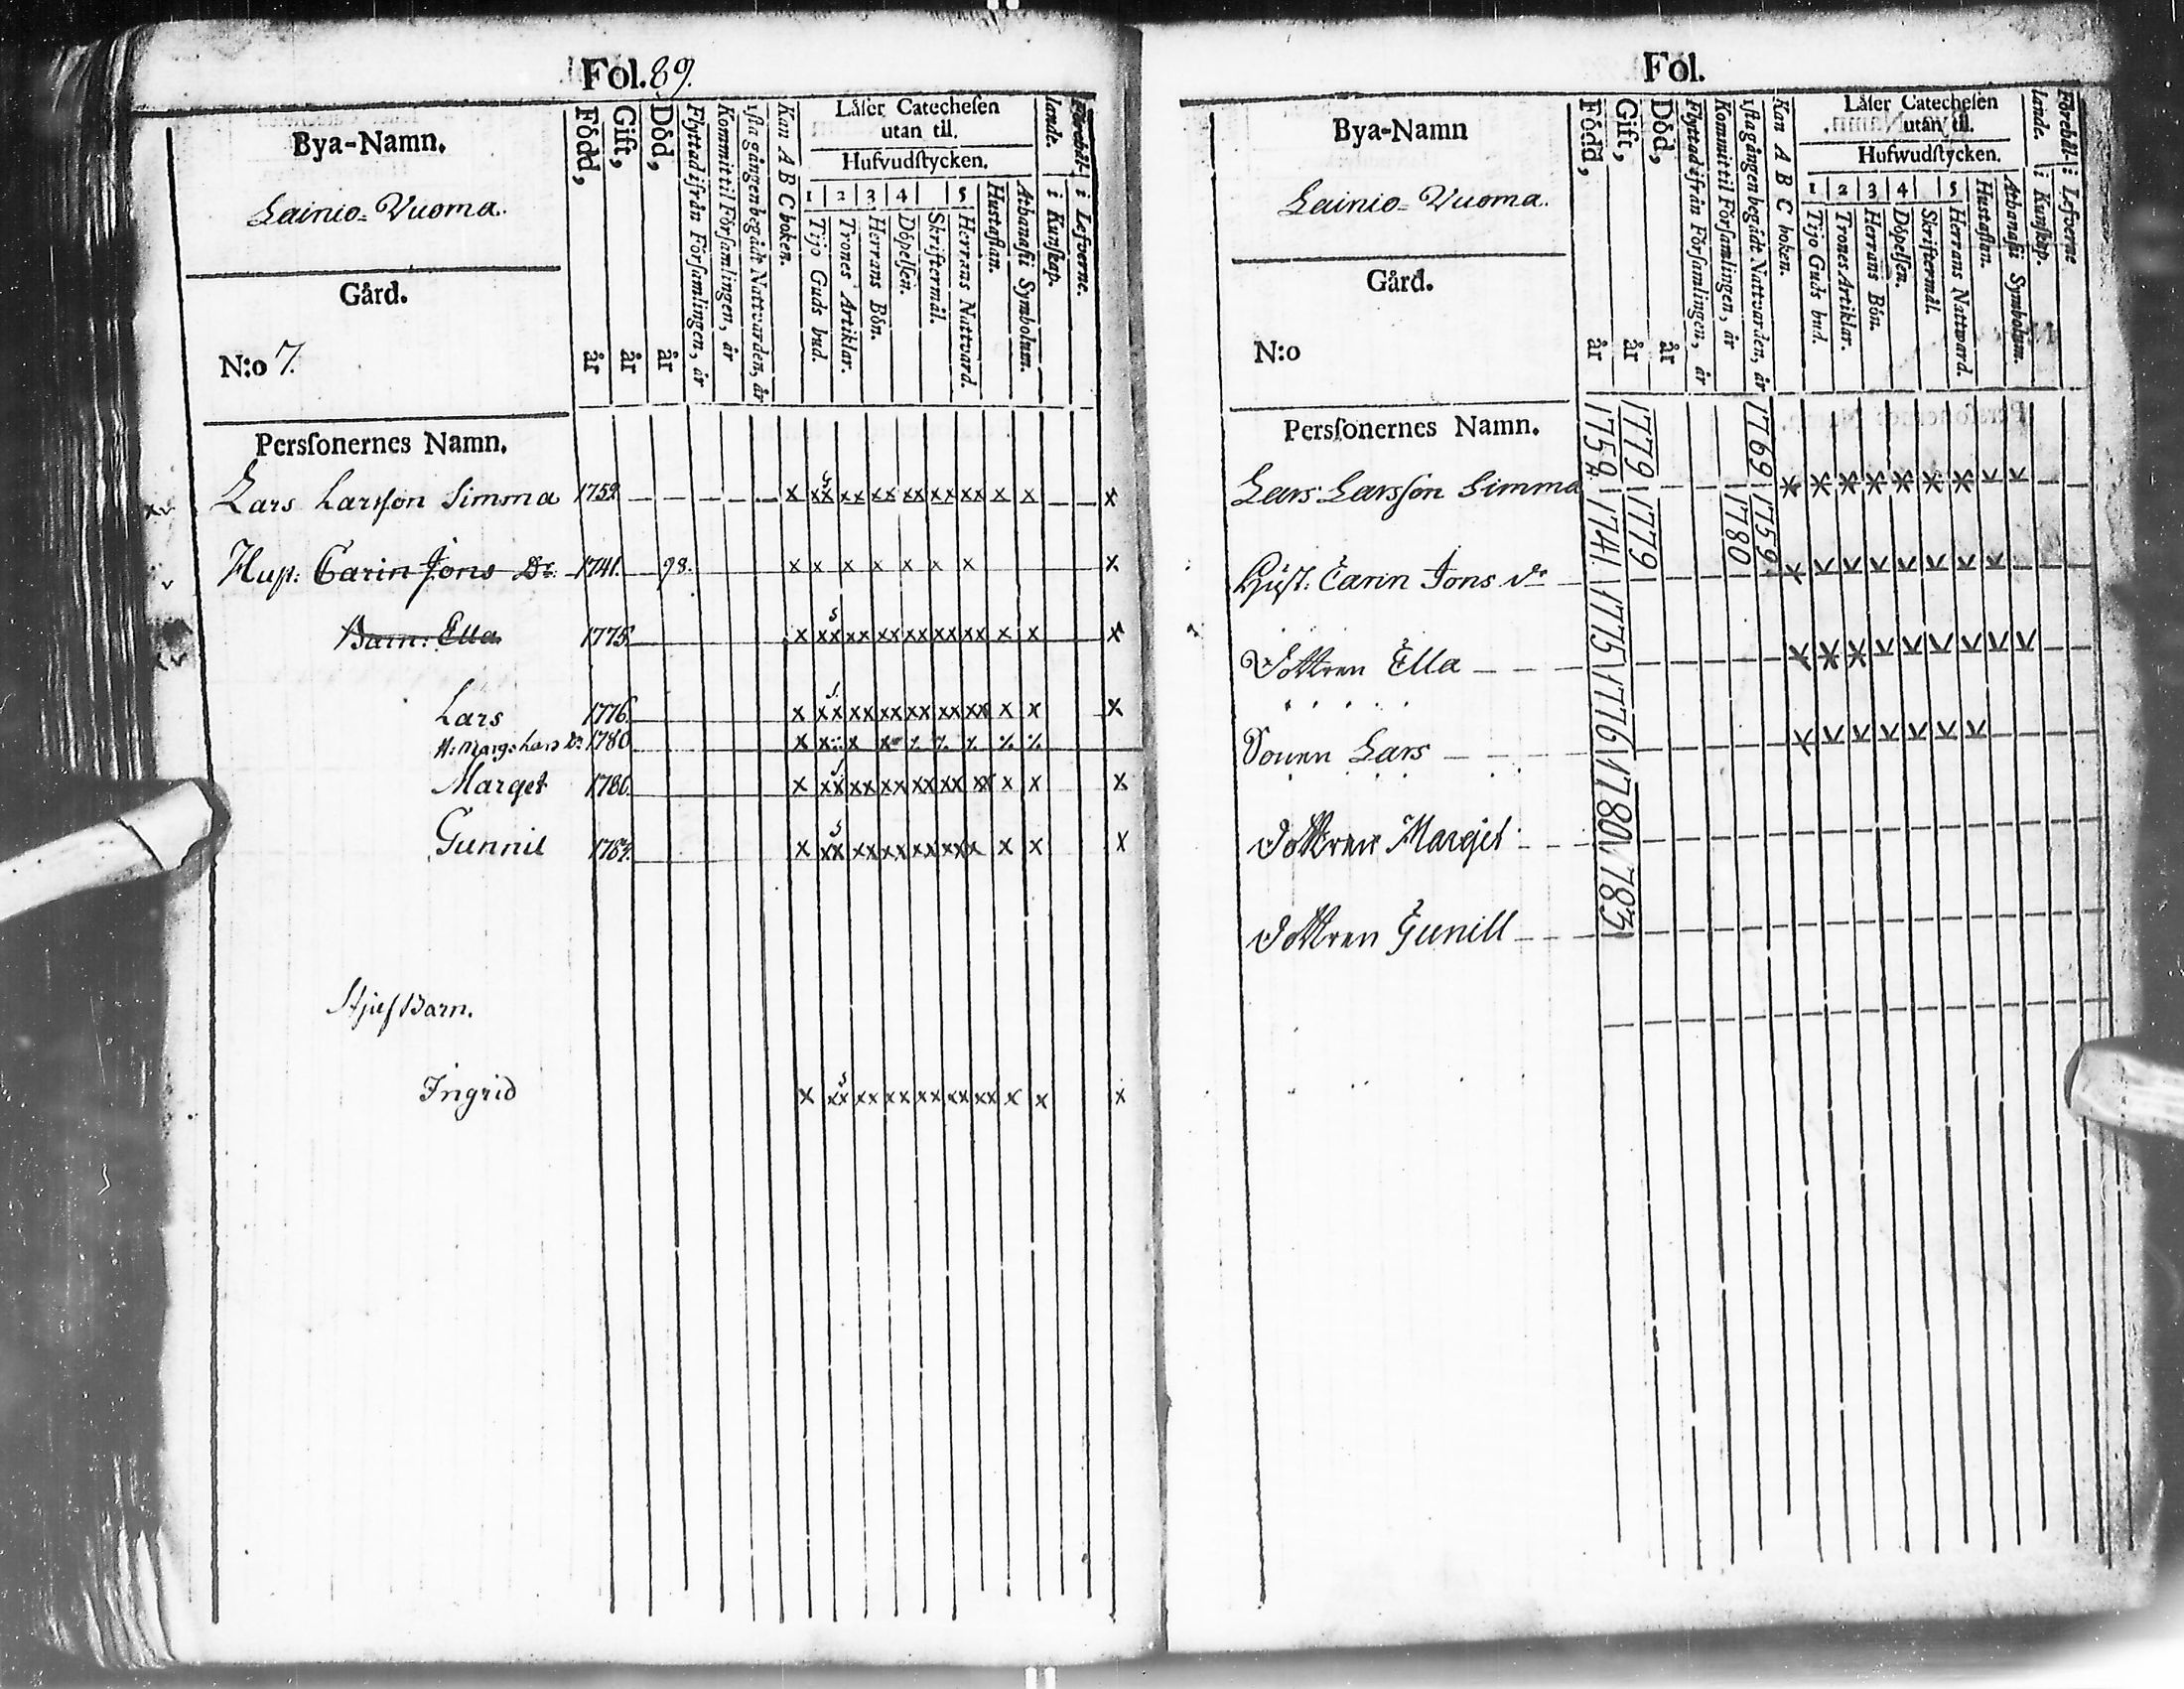 Fol. 89.
Bya-Namn.
Lainio=Vuoma.
Gård.
N:o 7.
Persſonernes Namn.
Född, år
Gift, år
Död, år
Flyttad ifrån Församlingen, år
Kommit til Församlingen, år
1ſta gången begådt Nattvarden, år
Kan A B C boken.
Läſer Catecheſen
utan til.
Hufvudſtycken.
1 2 3 4 5
Tijo Guds bud.
Trones Artiklar.
Herrans Bön.
Döpelſen.
Skriftermål.
Herrans Nattvard.
Huſtaflan.
Athanaſii Symbolum.
Förehål-
lande.
i Kunſkap.
i Lefverne.
Lars Larsson Simma 1752 — — — — — x xx xx xx xx xx xx x x — — x
Hust: Carin Jons Dr 1741. 98. x x x x x x x x
Barn: Ella 1775. x xx xx xx xx xx xx x x x
Lars 1776. x xx xx xx xx xx xx x x x
H: Marg. Lars Dr 1780
Marget 1780. x xx xx xx xx xx xx x x x
Gunnil 1783. x xx xx xx xx xx xx x x x
Stjuf Barn.
Ingrid x xx xx xx xx xx xx x x x
Fol.
Bya-Namn
Lainio=Vuoma.
Gård.
N:o
Persſonernes Namn.
Född, år
Gift, år
Död, år
Flyttad ifrån Församlingen, år
Kommit til Församlingen, år
1ſta gången begådt Nattvarden, år
Kan A B C boken.
Läſer Catecheſen
utan til.
Hufwudſtycken.
1 2 3 4 5
Tijo Guds bud.
Trones Artiklar.
Herrans Bön.
Döpelſen.
Skriftermål.
Herrans Nattward.
Huſtaflan.
Athanaſii Symbolum.
Förehål-
lande.
i Kunſkap.
i Lefverne
Lars Larsson Simma 1752 1779 1769
Hust: Carin Jons dr 1741 1779 1780 1759
Dottren Ella 1775
Sonen Lars 1776
Dottren Marget 1780
Dottren Gunill 1783